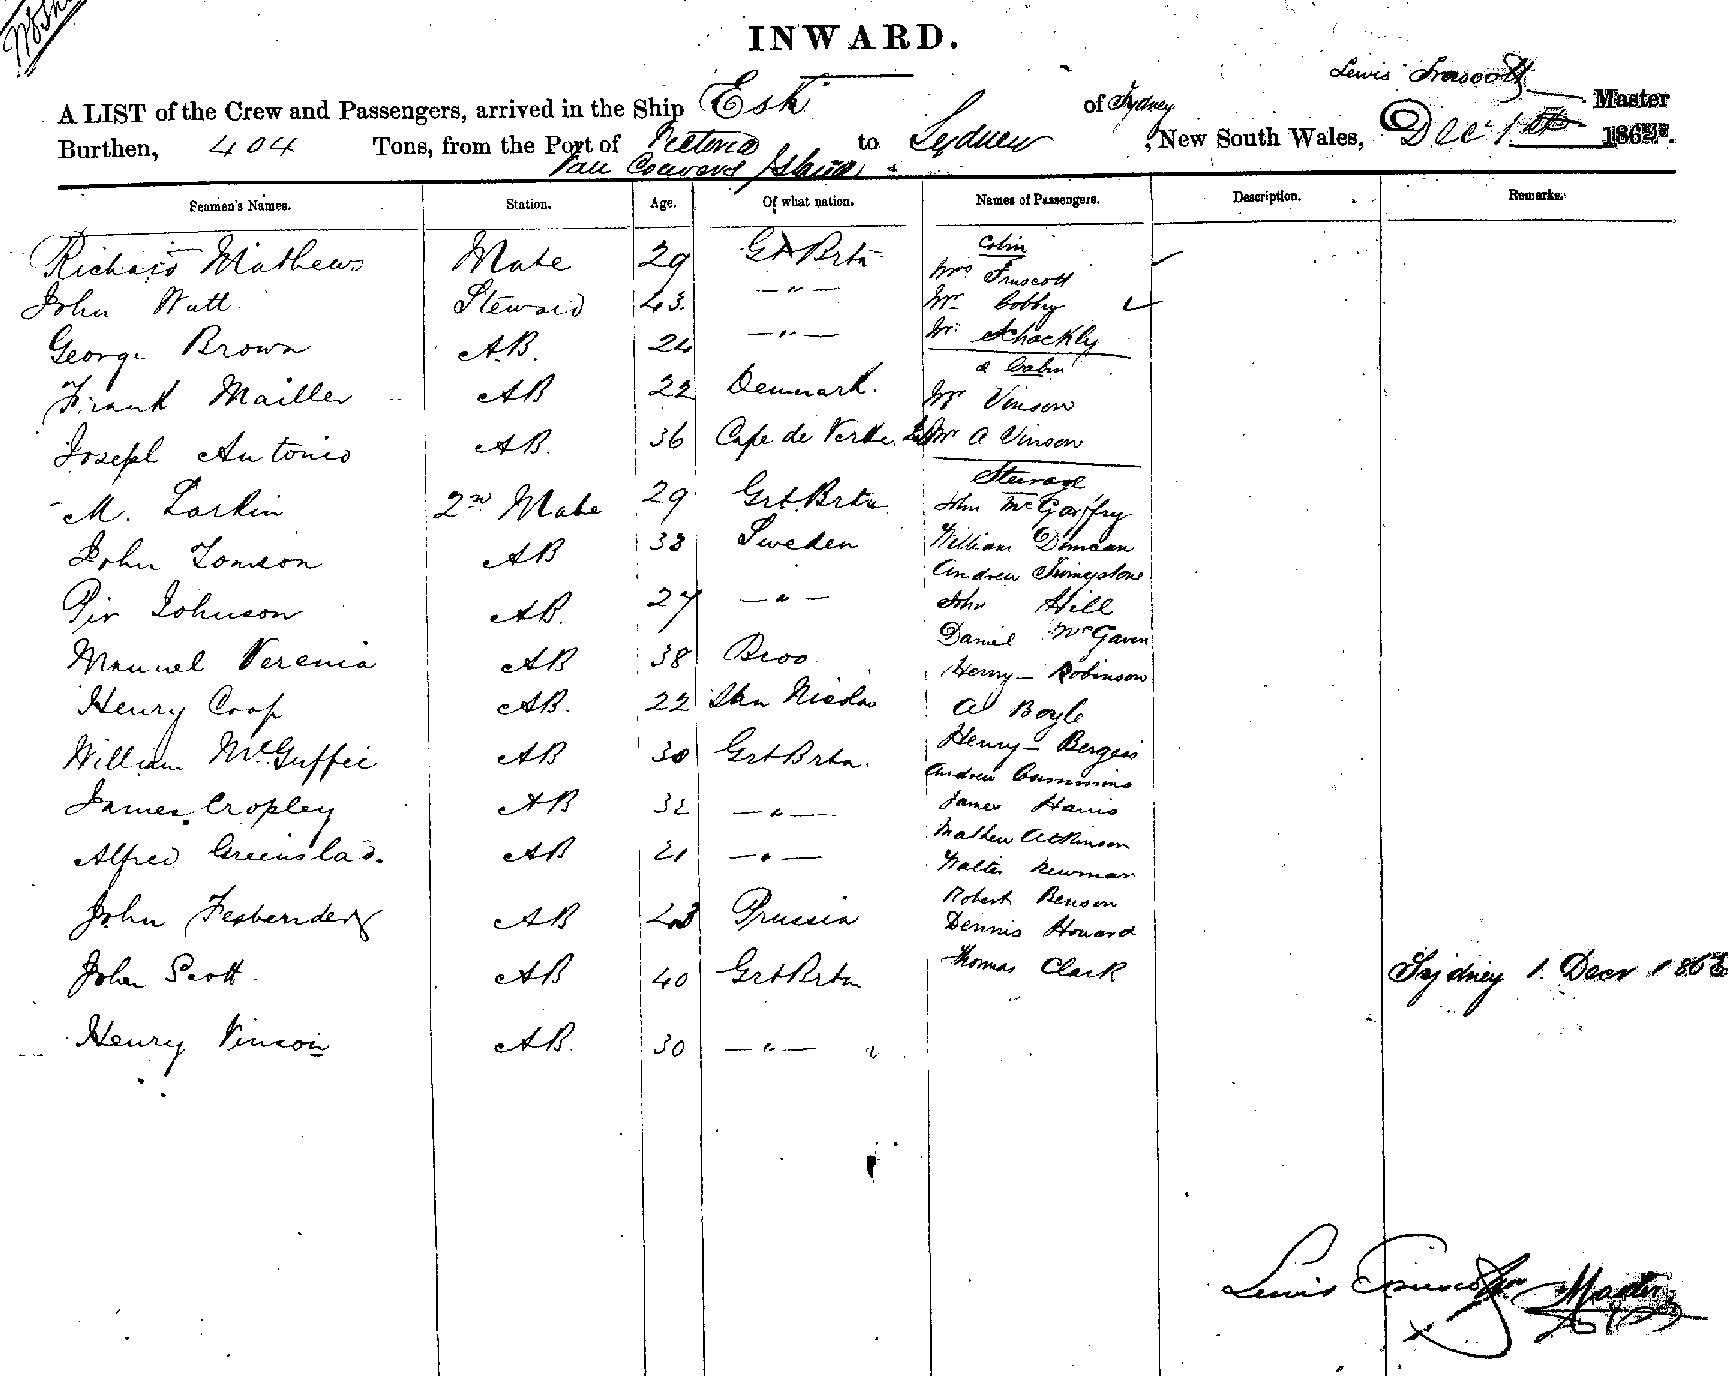 INWARD.
Lewis Truscott Master
A LIST of the Crew and Passengers, arrived in the Ship Esk of Sydney
Burthen, 404 Tons, from the Port of Victoria to Sydney New South Wales, Dec 1st 186
Van Couvers Island
Seamen's Names. Station. Age. Of what nation. Names of Passengers. Description. Remarks.
Cabin
Richard Mathews Mate 29 Gt Brtn Mrs Truscott
John Watt Steward 43 — " — Mr Cobby
George Brown A.B. 24 — " — Mr Shackly
2 Cabin
Frank Mailler AB 22 Denmark. Mr Vinson
Joseph Antonio AB. 36 Cape de Verde Mr A Vinson
Steerage
M. Larkin 2nd Mate 29 Grt Brtn John McGaffry
John Tomson AB 33 Sweden William Duncan
Andrew Livingstone
Pir Johnson AB. 27 — " — John Hill
Daniel McGaven
Manuel Verenia AB 38 Henry Robinson
Henry Coop AB. 22 San Nicolas A Boyle
William McGuffie AB 30 Grt Brtn. Henry Bergeis
Andrew Cummins
James Cropley AB 32 — " — James Harris
Mathew Atkinson
Alfred Greenslad. AB 21 — " — Walter Newman
Robert Benson
John Fesbender AB 23 Prussia Dennis Howard
John Scott AB 40 Grt Brtn Thomas Clark Sydney 1. Decr 186
Henry Vinson AB. 30 — " —
Lewis Truscott Master